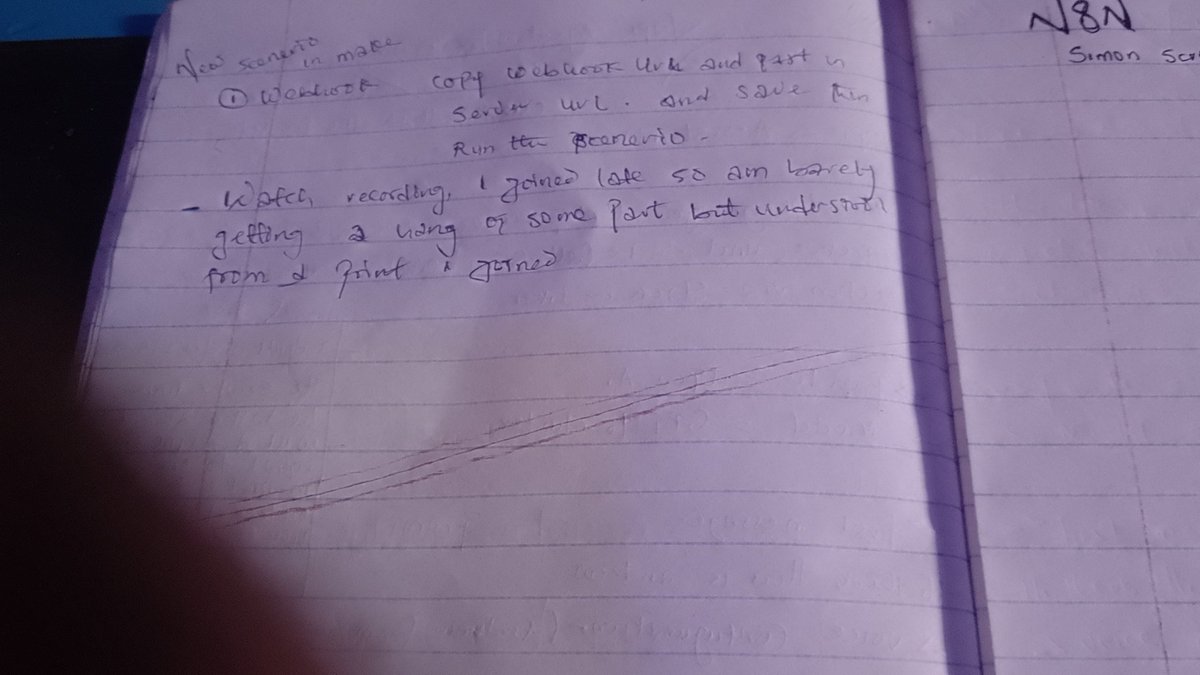 New scenerio
in make
① Webhook
copy webhook url and past in
Server url. and save then
Run the scenerio.
- Watch recording, i joined late so am barely
getting a hang of some part but understood
from d print i joined
N8N
Simon